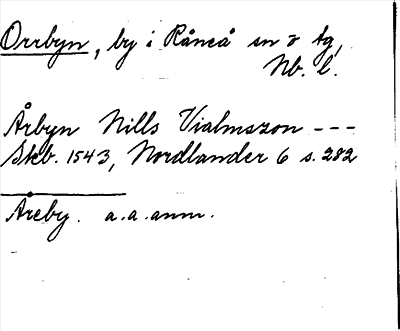 Orrbyn, by i Råneå sn o tg,
Nb. l.
Årbyn Nills Vialmszon ---
Skb. 1543, Nordlander 6 s. 282
Åreby. a.a. anm.